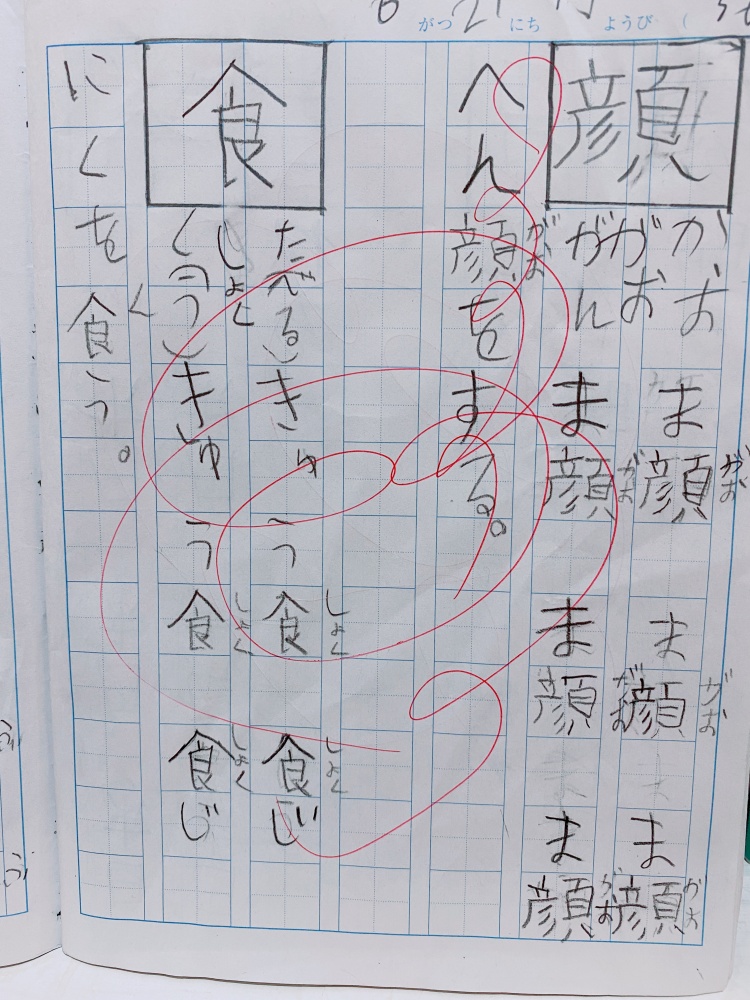 6がつ21にち ようび(
顔
かお
がお
がん
ま顔 ま顔 ま顔
がお がお がお
ま顔 ま顔 ま顔
がお がお がお
へん顔をする。
がお
食
た(べる)
しょく
く(う)
きゅう食 食じ
しょく しょく
きゅう食 食じ
しょく しょく
にくを食う。
く